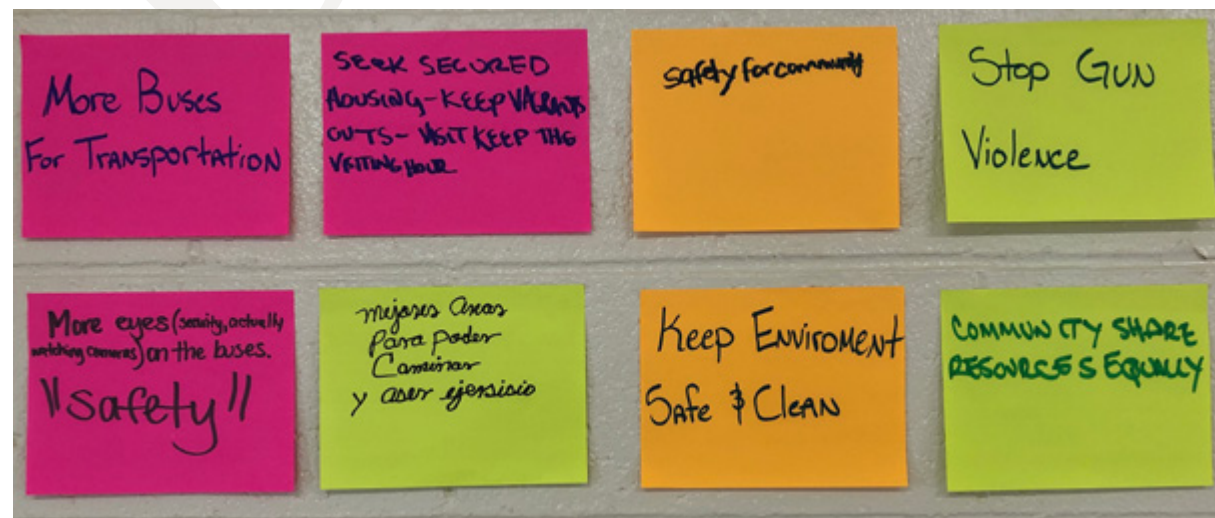 More Buses
For Transportation
SEEK SECURED
HOUSING-KEEP VAGRANTS
OUTS- VISIT KEEP THE
VISITING HOUR
safety for community
Stop Gun
Violence
More eyes (security, actually
watching cameras) on the buses.
"safety"
mejores areas
Para poder
Caminar
y aser ejersisio
Keep Enviroment
Safe & Clean
COMMUNITY SHARE
RESOURCES EQUALLY